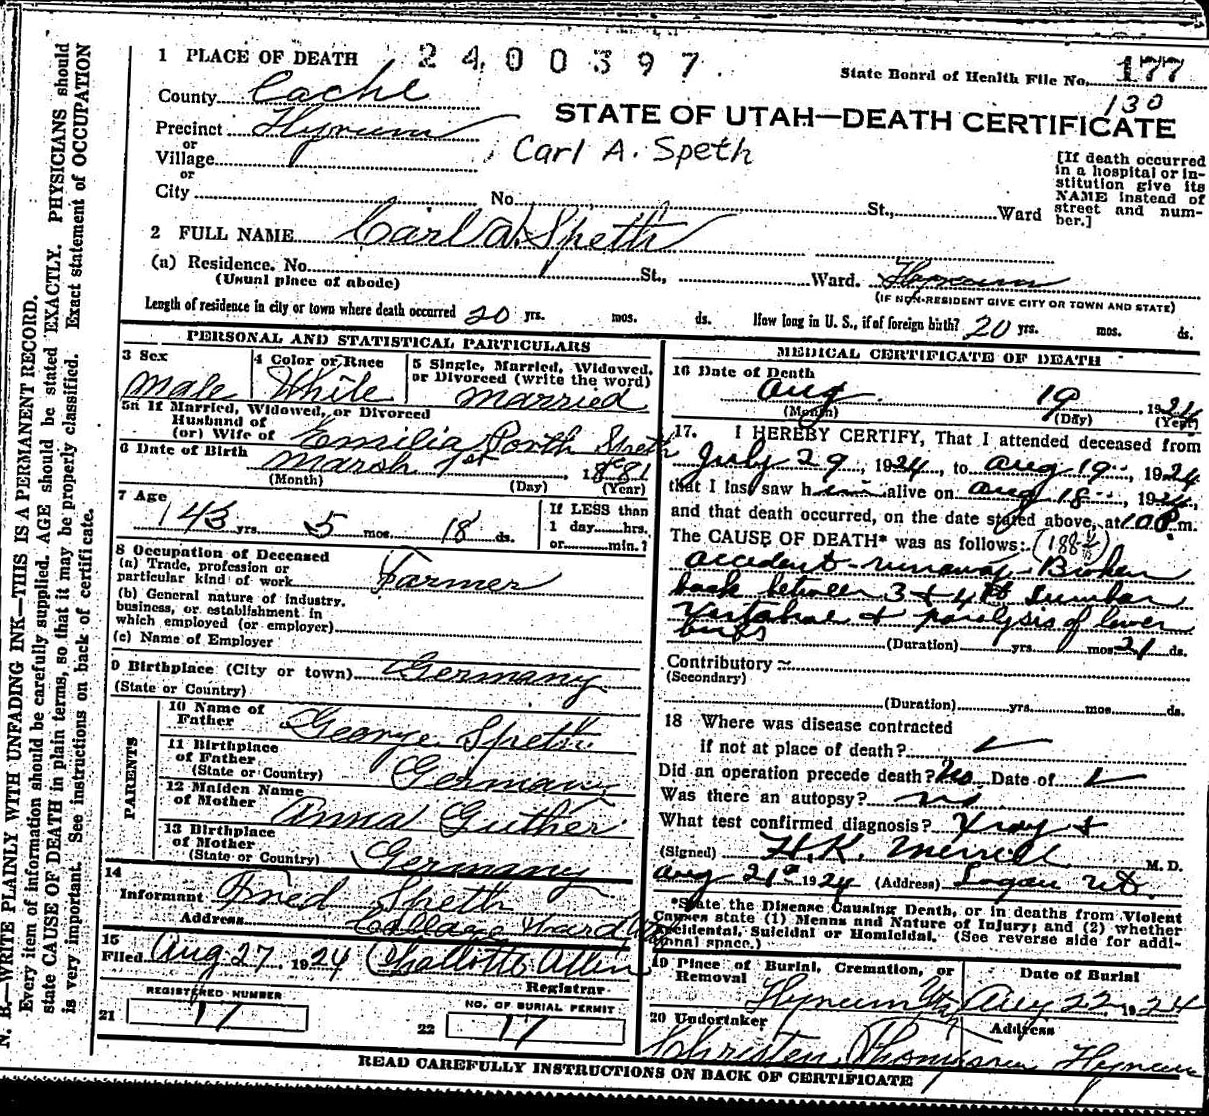 1 PLACE OF DEATH 2400397
State Board of Health File No. 177
130
County Cache
STATE OF UTAH—DEATH CERTIFICATE
Precinct Hyrum
or
Village
Carl A. Speth
or
City No. St., Ward
[If death occurred
in a hospital or in-
stitution give its
NAME instead of
street and num-
ber.]
2 FULL NAME Carl A. Speth
(a) Residence. No. St., Ward. Hyrum
(Usual place of abode)
(IF NON-RESIDENT GIVE CITY OR TOWN AND STATE)
Length of residence in city or town where death occurred 20 yrs. mos. ds. How long in U. S., if of foreign birth? 20 yrs. mos. ds.
PERSONAL AND STATISTICAL PARTICULARS
3 Sex
Male
4 Color or Race
White
5 Single, Married, Widowed,
or Divorced (write the word)
married
5a If Married, Widowed, or Divorced
Husband of
(or) Wife of Emilia Porth Speth
6 Date of Birth Marsh 1st, 1881
(Month) (Day) (Year)
7 Age
43 yrs. 5 mos. 18 ds.
If LESS than
1 day hrs.
or min.?
8 Occupation of Deceased
(a) Trade, profession or
particular kind of work Farmer
(b) General nature of industry,
business, or establishment in
which employed (or employer)
(c) Name of Employer
9 Birthplace (City or town) Germany
(State or Country)
PARENTS
10 Name of
Father George Speth
11 Birthplace
of Father
(State or Country) Germany
12 Maiden Name
of Mother Anna Guther
13 Birthplace
of Mother
(State or Country) Germany
14
Informant Fred Speth
Address College Ward
15
Filed Aug 27 1924 Challotte Allen
Registrar
REGISTERED NUMBER
21 17
NO. OF BURIAL PERMIT
22 17
MEDICAL CERTIFICATE OF DEATH
16 Date of Death
Aug 19, 1924
(Month) (Day) (Year)
17. I HEREBY CERTIFY, That I attended deceased from
July 29, 1924, to Aug 19, 1924
that I last saw him alive on Aug 18, 1924,
and that death occurred, on the date stated above, at P.m.
The CAUSE OF DEATH* was as follows: (188
accident - runaway - Broken
back between 3 & 4th Lumbar
& paralysis of lower
(Duration) yrs. mos. 21 ds.
Contributory
(Secondary)
(Duration) yrs. mos. ds.
18 Where was disease contracted
if not at place of death?
Did an operation precede death? No Date of
Was there an autopsy? no
What test confirmed diagnosis? Xray +
(Signed) H.K. Merrill M. D.
Aug 21st 1924 (Address) Logan Ut
*State the Disease Causing Death, or in deaths from Violent
Causes state (1) Means and Nature of Injury; and (2) whether
Accidental, Suicidal or Homicidal. (See reverse side for addi-
tional space.)
19 Place of Burial, Cremation, or
Removal
Hyrum Utah
Date of Burial
Aug 22 1924
20 Undertaker Address
Christen Thompson Hyrum
READ CAREFULLY INSTRUCTIONS ON BACK OF CERTIFICATE
N. B.—WRITE PLAINLY WITH UNFADING INK—THIS IS A PERMANENT RECORD.
Every item of information should be carefully supplied. AGE should be stated EXACTLY. PHYSICIANS should
state CAUSE OF DEATH in plain terms, so that it may be properly classified. Exact statement of OCCUPATION
is very important. See instructions on back of certificate.